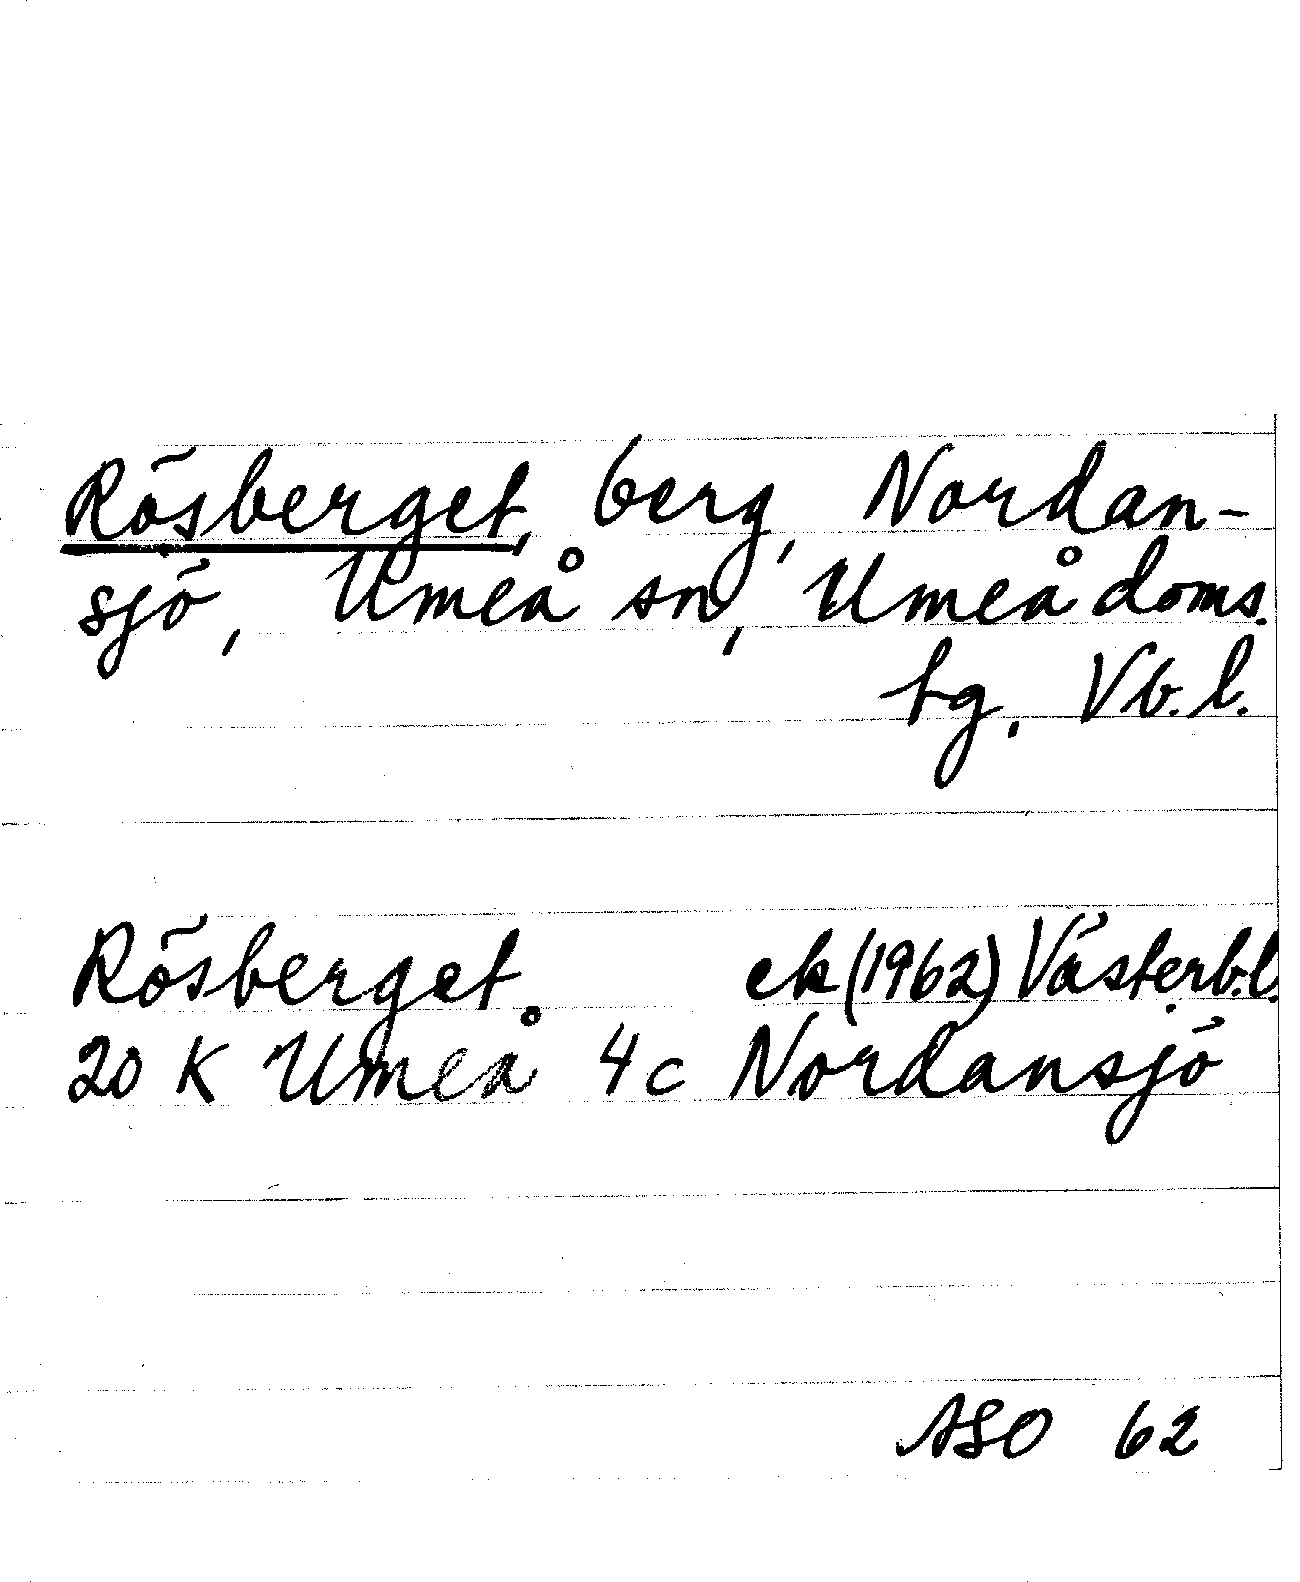 Rösberget, berg, Nordan-
sjö, Umeå sn, Umeå doms.
tg. Vb.l.
Rösberget. ek (1962) Västerb.l.
20 K Umeå 4c Nordansjö
ASO 62